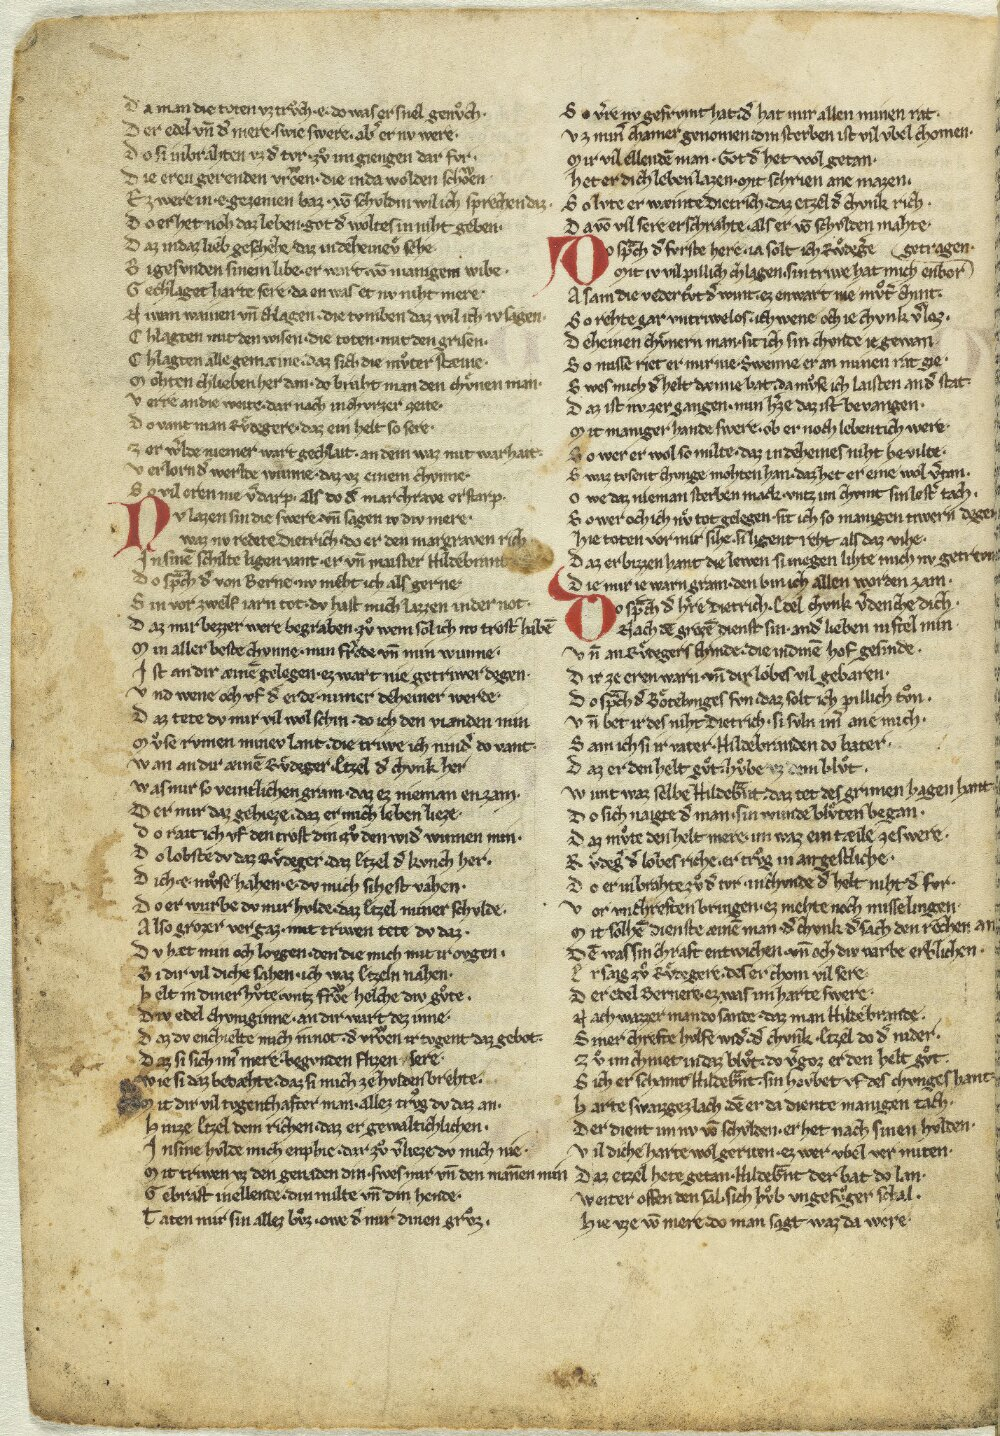 D a man die toten vz trůch · e · do was er snel genůch ·
D er edel vn̄ dˢ mere · swie swere · abˢ er nv were ·
D o si in brahten vz dˢ tvr · zů im giengen dar fvr ·
D ie eren gerenden vrowen · die in da wolden schowen
E z were in · e · gezemen baz · vō schuldin wil ich sprechen daz ·
D o er het noh daz leben · got dˢ woltes in niht geben ·
D az in daz lieb geschehe · daz in deheinev sehe
B i gesvnden sinem libe · er wart vō manigem wibe ·
G echlaget harte sere · da en was et nv niht mere
N iwan wainen vn̄ chlagen · die tvmben daz wil ich iv sagen ·
C hlagten mit den wisen · die toten · mit den grisen ·
C hlagten alle gemæine · daz sich die mvrter stæine ·
M ohten chlieben her dan · do braht man den chůnen man ·
V erre an die weite · dar nach in chvrzer zeite ·
D o vant man Růdegere · daz ein helt so sere ·
Z er wˢlde niemer wart gechlait · an dem waz mit warhait ·
V erlorn dˢ werlde wunne · daz vz einem chvnne ·
S o vil eren nie vˢdarp · als do dˢ marchrave erstarp ·
N v lazen sin die swere · vn̄ sagen iv div mere ·
waz nv redete Dietrich · do er den margraven rich
I n sinē schilte ligen vant · er vn̄ maister Hildebrant
D o sp̄ch dˢ von Berne · nv meht ich als gerne
S in vor zwelf iarn tot · dv hast mich lazzen in der not ·
D az mir bezzer were begraben · zů wem sol ich nv trost habē
M in aller beste chvnne · min frode vn̄ min wunne ·
I st an dir æinē gelegen · ez wart nie getriwer degen ·
V nd wene och vf dˢ erde · nimer deheiner werde ·
D az tete dv mir vil wol schin · do ich den vianden min
M ůse rvmen minev lant · die triwe ich nindˢ do vant ·
W an an dir æinē Růdeger · Etzel dˢ chvnk her
W as mir so veintlichen gram · daz ez nieman en zam ·
D er mir daz gehieze · daz er mich leben lieze ·
D o rait ich vf den trost din · zů den widˢ winnen min ·
D o lobste dv daz Růdeger · daz Etzel dˢ kvnich her ·
D ich · e · můse hahen · e · dv mich lihest vahen ·
D o er wurbe dv mir hvlde · daz Etzel miner schvlde ·
A lso grozer vergaz · mit triwen tete dv daz ·
D v hat min och lovgen · den die mich mit ir ovgen ·
B i dir vil diche sahen · ich waz Etzeln nahen ·
H elt in diner hůte · vntz frowe Helche div gůte ·
D iv edel chvniginne · an dir wart dez inne ·
D az dv enthielte mich in not · dˢ vrowen ir tvgent daz gebot ·
D az si sich imˢ mere · begvnden flizen sere ·
W ie si daz bedæhte · daz si mich ze hvlden brehte ·
M it dir vil tvgenthafter man · allez trůg dv daz an ·
H inze Etzel dem richen · daz er gewaltichlichen ·
I n sine hvlde mich enphie · dar zů vˢlieze dv mich nie ·
M it triwen vz den genaden din · swes mir vn̄ den mannen min
G ebrast in ellende · din milte vn̄ din hende ·
T aten mir sin allez bůz · owe dˢ mir dinen grůz ·
S o vˢre nv gefrvmt hat · dˢ hat mir allen minen rat ·
V z minˢ chamer genomen · din sterben ist vil vbel chomen ·
M ir vil ellendē man · Got dˢ het wol getan ·
H et er dich leben lazen · mit schrien ane mazen ·
S o lvte er wæinte Dietrich · daz Etzel dˢ chvnk rich ·
D avō vil sere erschrahte · als er vō schvlden mahte ·
D o sp̄ch dˢ fvrste here · ia solt ich Růdegˢe
Mit iv vil pillich chlagen · sin triwe hat mich enbor getragen ·
A sam die veder tůt dˢ wint · ez enwart nie můtˢ chint ·
S o rehte gar vntriwelos · ich wene och ie chvnk vˢloz ·
D eheinen chůnern man · sit ich sin chvnde ie gewan
S o misse riet er mir nie · swenne er an minen rat gie ·
S wes mich dˢ helt dænne bat · da můse ich laisten an dˢ stat ·
D az ist nv zergangen · min hˢze daz ist bevangen ·
M it maniger hande swere · ob er noch lebentich were ·
S o wer er wol so milte · daz in deheines niht bevilte ·
S waz tvsent chvnge mohten han · daz het er eine wol vˢtan ·
O we daz nieman sterben mack · vntz im chvmt sin lestˢ tach ·
S o wer och ich nv tot gelegen · sit ich so manigen tiwern degen
Hie toten vor mir sihe · si ligent reht als daz vihe ·
D az erbizzen hant die lewen · si mvgen lihte mich nv getrewen
D ie mir ie warn gram · den bin ich allen worden zam ·
D o sp̄ch dˢ hˢre Dietrich · Edel chvnk vˢdenche dich ·
Nach dē grozē dienst sin · andˢ lieben nistel min ·
V n̄ an Růdegers chinde · die in dinē hof gesinde ·
D ir ze eren warn · vn̄ dir lobes vil gebaren ·
D o sp̄ch dˢ Botelvnges svn · daz solt ich pillich tůn ·
V n̄ bet ir des niht Dietrich · si svln imˢ ane mich ·
S am ich si ir vater · Hildebranden do bater ·
D az er den helt gůt · hůbe vz dem blůt ·
W unt waz selbe Hildebˢnt · daz tet des grimen Hagen hant
D o sich naigte dˢ man · sin wunde blůten began ·
D az můte den helt mere · im waz ein tæile ze swere ·
R ůdegˢ dˢ lobes riche · er trůg in angestliche ·
D o er in brahte zů dˢ tvr · in chvnde dˢ helt niht dˢ fvr ·
V or vnchreften bringen · ez mehte noch misselingen ·
M it sölhē dienste æinē man · dˢ chvnk dˢ sach den rechen an
D ē was sin chraft entwichen · vn̄ och div varbe erblichen ·
E r saig zů Růdegere · des erchom vil sere
D er edel Bernere · ez was im harte swere ·
N ach wazzer man do sande · daz man Hildebrande ·
S iner chrefte holfe widˢ · dˢ chvnk Etzel do dˢ nider ·
Z v im chniet in daz blůt · do vˢgoz er den helt gůt ·
S ich er schamte Hildebˢnt · sin hovbet vf des chvnges hant ·
H arte swaz gezlach dē er da diente manigen tach ·
D er dient im nv vō schvlden · er het nach sinen hvlden ·
V il diche harte wol geriten · ez wer vbel vermiten ·
D az Etzel hete getan · Hildebˢnt der bat do lan ·
Weiter offen den sal · sich hůb vngefůger schal ·
Hie vze vō mere · do man sagt waz da were